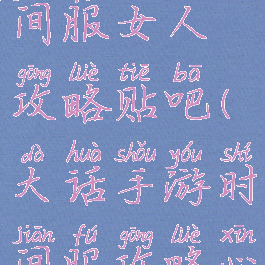 间服女人
gōng lüè tiē bā
攻略贴吧(
dà huà shǒu yóu shí
大话手游时
jiān fú gōng lüè xīn
间服攻略心